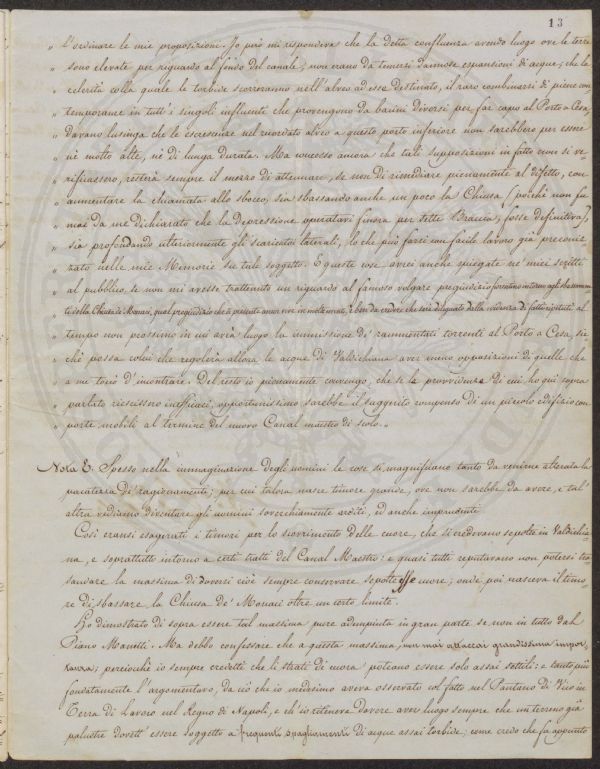 13
„ l'ordinare le mie proposizione. Io però mi rispondeva che la detta confluenza avendo luogo ove le terre
„ sono elevate per riguardo al fondo del canale, non erano da temersi dannose espansioni di acque; che la
„ celerità colla quale le torbide scorreranno nell'alveo ad esse destinato, il raro combinarsi di piene con
„ temporanee in tutti i singoli influenti che provengono da bacini diversi per far capo al Porto a Cesa,
„ davano lusinga che le escrescenze nel ricordato alveo a questo porto inferiore non sarebbero per essere
„ nè molto alte, nè di lunga durata. Ma concesso ancora che tali supposizioni in fatto non si ve-
„ rificassero, resterà sempre il mezzo di attenuare, se non di rimediare pienamente al difetto, con
„ aumentare la chiamata allo sbocco, sia sbassando anche un poco la Chiusa (poichè non fu
„ mai da me dichiarato che la depressione operatavi finora per sette Braccia, fosse definitiva)
„ sia profondando ulteriormente gli scaricatoi laterali, lo che può farsi con facile lavoro già preconiz
„ zato nelle mie Memorie su tale soggetto. E queste cose avrei anche spiegate ne' miei scritti
„ al pubblico, se non mi avesse trattenuto un riguardo al famoso volgare pregiudizio fiorentino intorno agli sbassamen
„ ti della Chiusa de' Monaci, qual pregiudizio che di presente ancor vive in molte menti, è ben da credere che sarà dileguato dalla evidenza di fatti ripetuti al
„ tempo non prossimo in cui avrà luogo la immissione de' rammentati torrenti al Porto a Cesa, sic
„ chè possa colui che regolerà allora le acque di Valdichiana aver meno opposizioni di quelle che
„ a me toccò d'incontrare. Del resto io pienamente convengo, che se le provvidenze di cui ho qui sopra
„ parlato riescissero inefficaci, opportunissimo sarebbe il suggerito compenso di un piccolo edifizio con
„ porte mobili al termine del nuovo Canal maestro di scolo. „
Nota E. Spesso nella immaginazione degli uomini le cose si magnificano tanto da venirne alterata la
pacatezza de' ragionamenti; per cui talora nasce timore grande, ove non sarebbe da avere, e tal'
altra vediamo diventare gli uomini soverchiamente arditi, ed anche imprudenti.
Così eransi esagerati i timori per lo scuoprimento delle cuore, che si credevano sepolte in Valdichia-
na, e soprattutto intorno a certi tratti del Canal Maestro: e quasi tutti reputavano non potersi tra
sandare la massima di doversi cioè sempre conservare sepolte esse cuore; onde poi nasceva il timo-
re di sbassare la Chiusa de' Monaci oltre un certo limite.
Ho dimostrato di sopra essere tal massima pure adempiuta in gran parte se non in tutto dal
Piano Manetti. Ma debbo confessare che a questa massima, non mai attaccai grandissima impor-
tanza; perciocchè io sempre credetti che li strati di cuora potevano essere solo assai sottili: e tanto più
fondatamente l'argomentavo, da ciò che io medesimo aveva osservato col fatto nel Pantano di Vico in
Terra di Lavoro nel Regno di Napoli, e ch'io riteneva dovere aver luogo sempre che un terreno già
palustre dovett' essere soggetto a frequenti spagliamenti di acque assai torbide; come credo che fa appunto